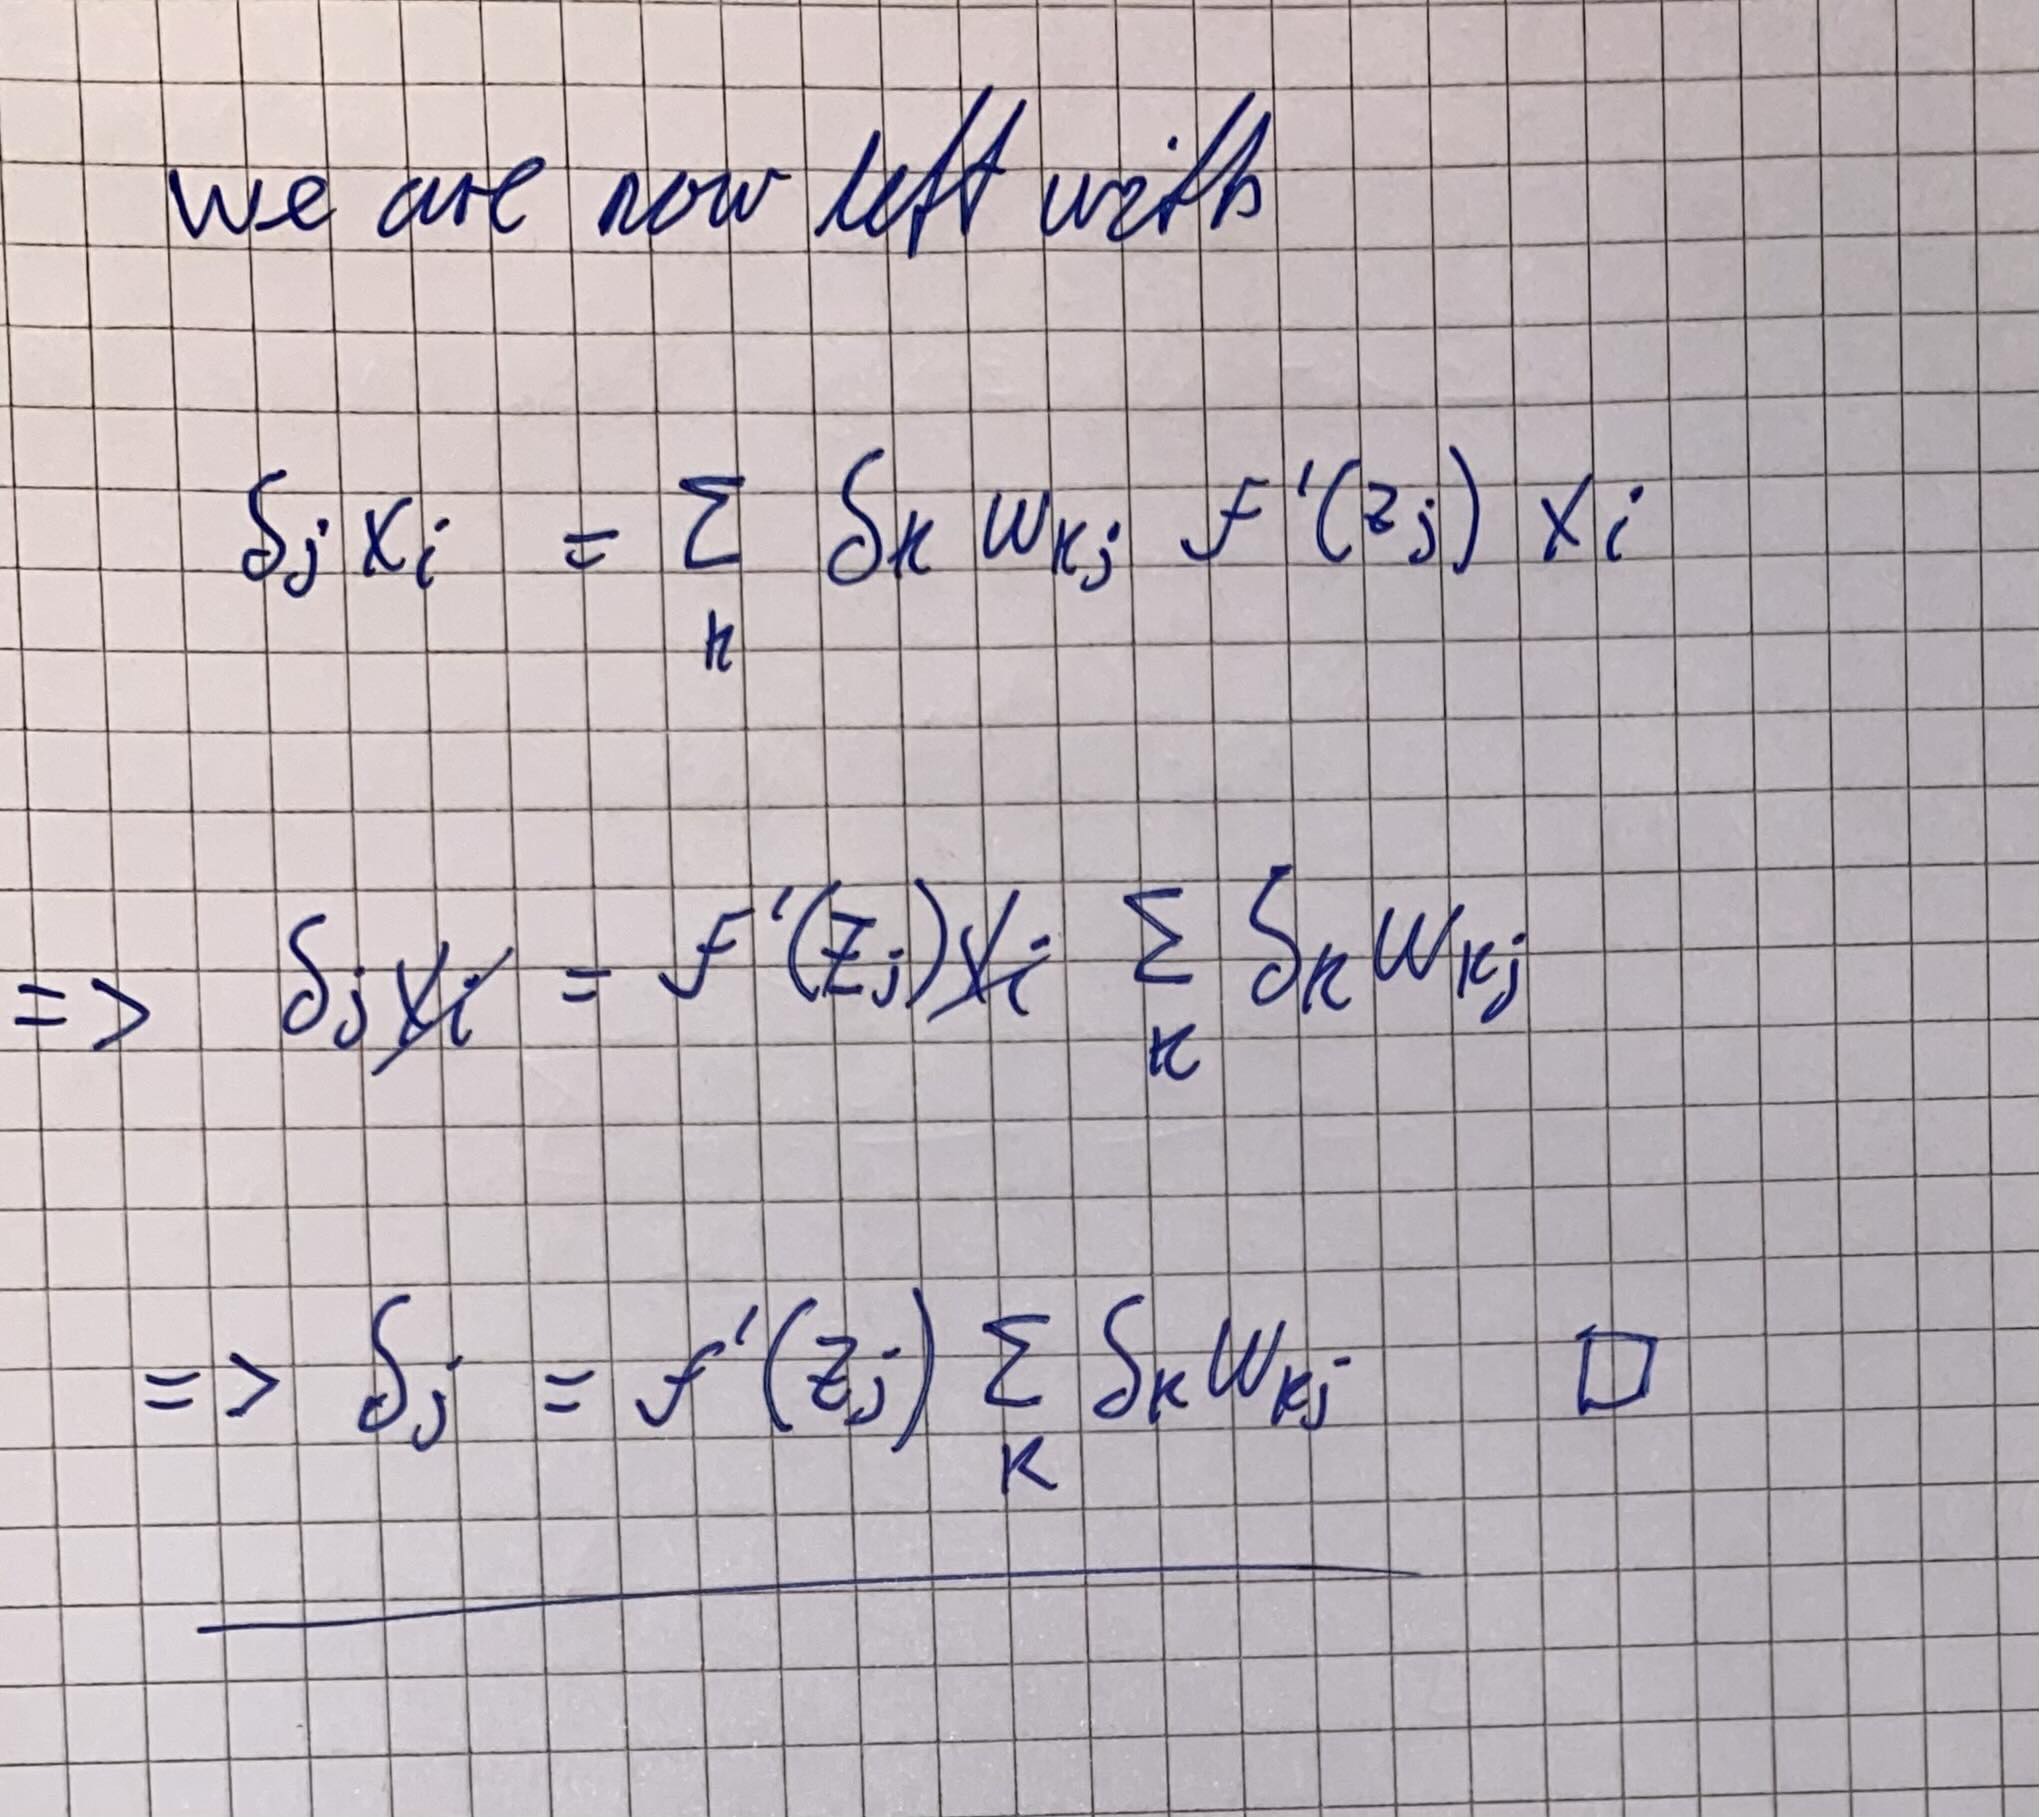 we are now left with
δj xi = Σ δk wkj f'(zj) xi
k
=> δj xi = f'(zj) xi Σ δk wkj
k
=> δj = f'(zj) Σ δk wkj □
k